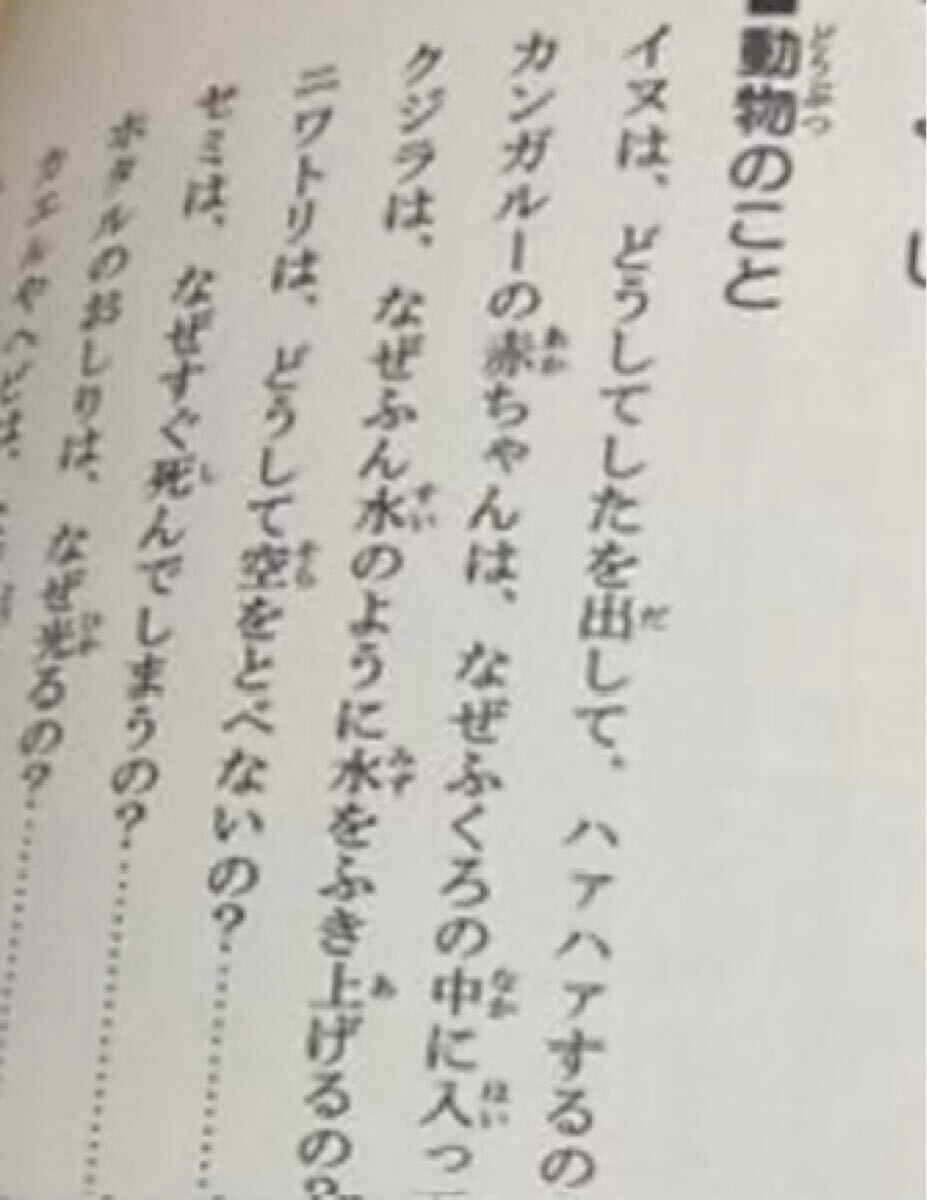 ■動物のこと
イヌは、どうしてしたを出して、ハァハァするの
カンガルーの赤ちゃんは、なぜふくろの中に入っ
クジラは、なぜふん水のように水をふき上げるの?
ニワトリは、どうして空をとべないの?
セミは、なぜすぐ死んでしまうの?
ホタルのおしりは、なぜ光るの?
カエルやヘビは、